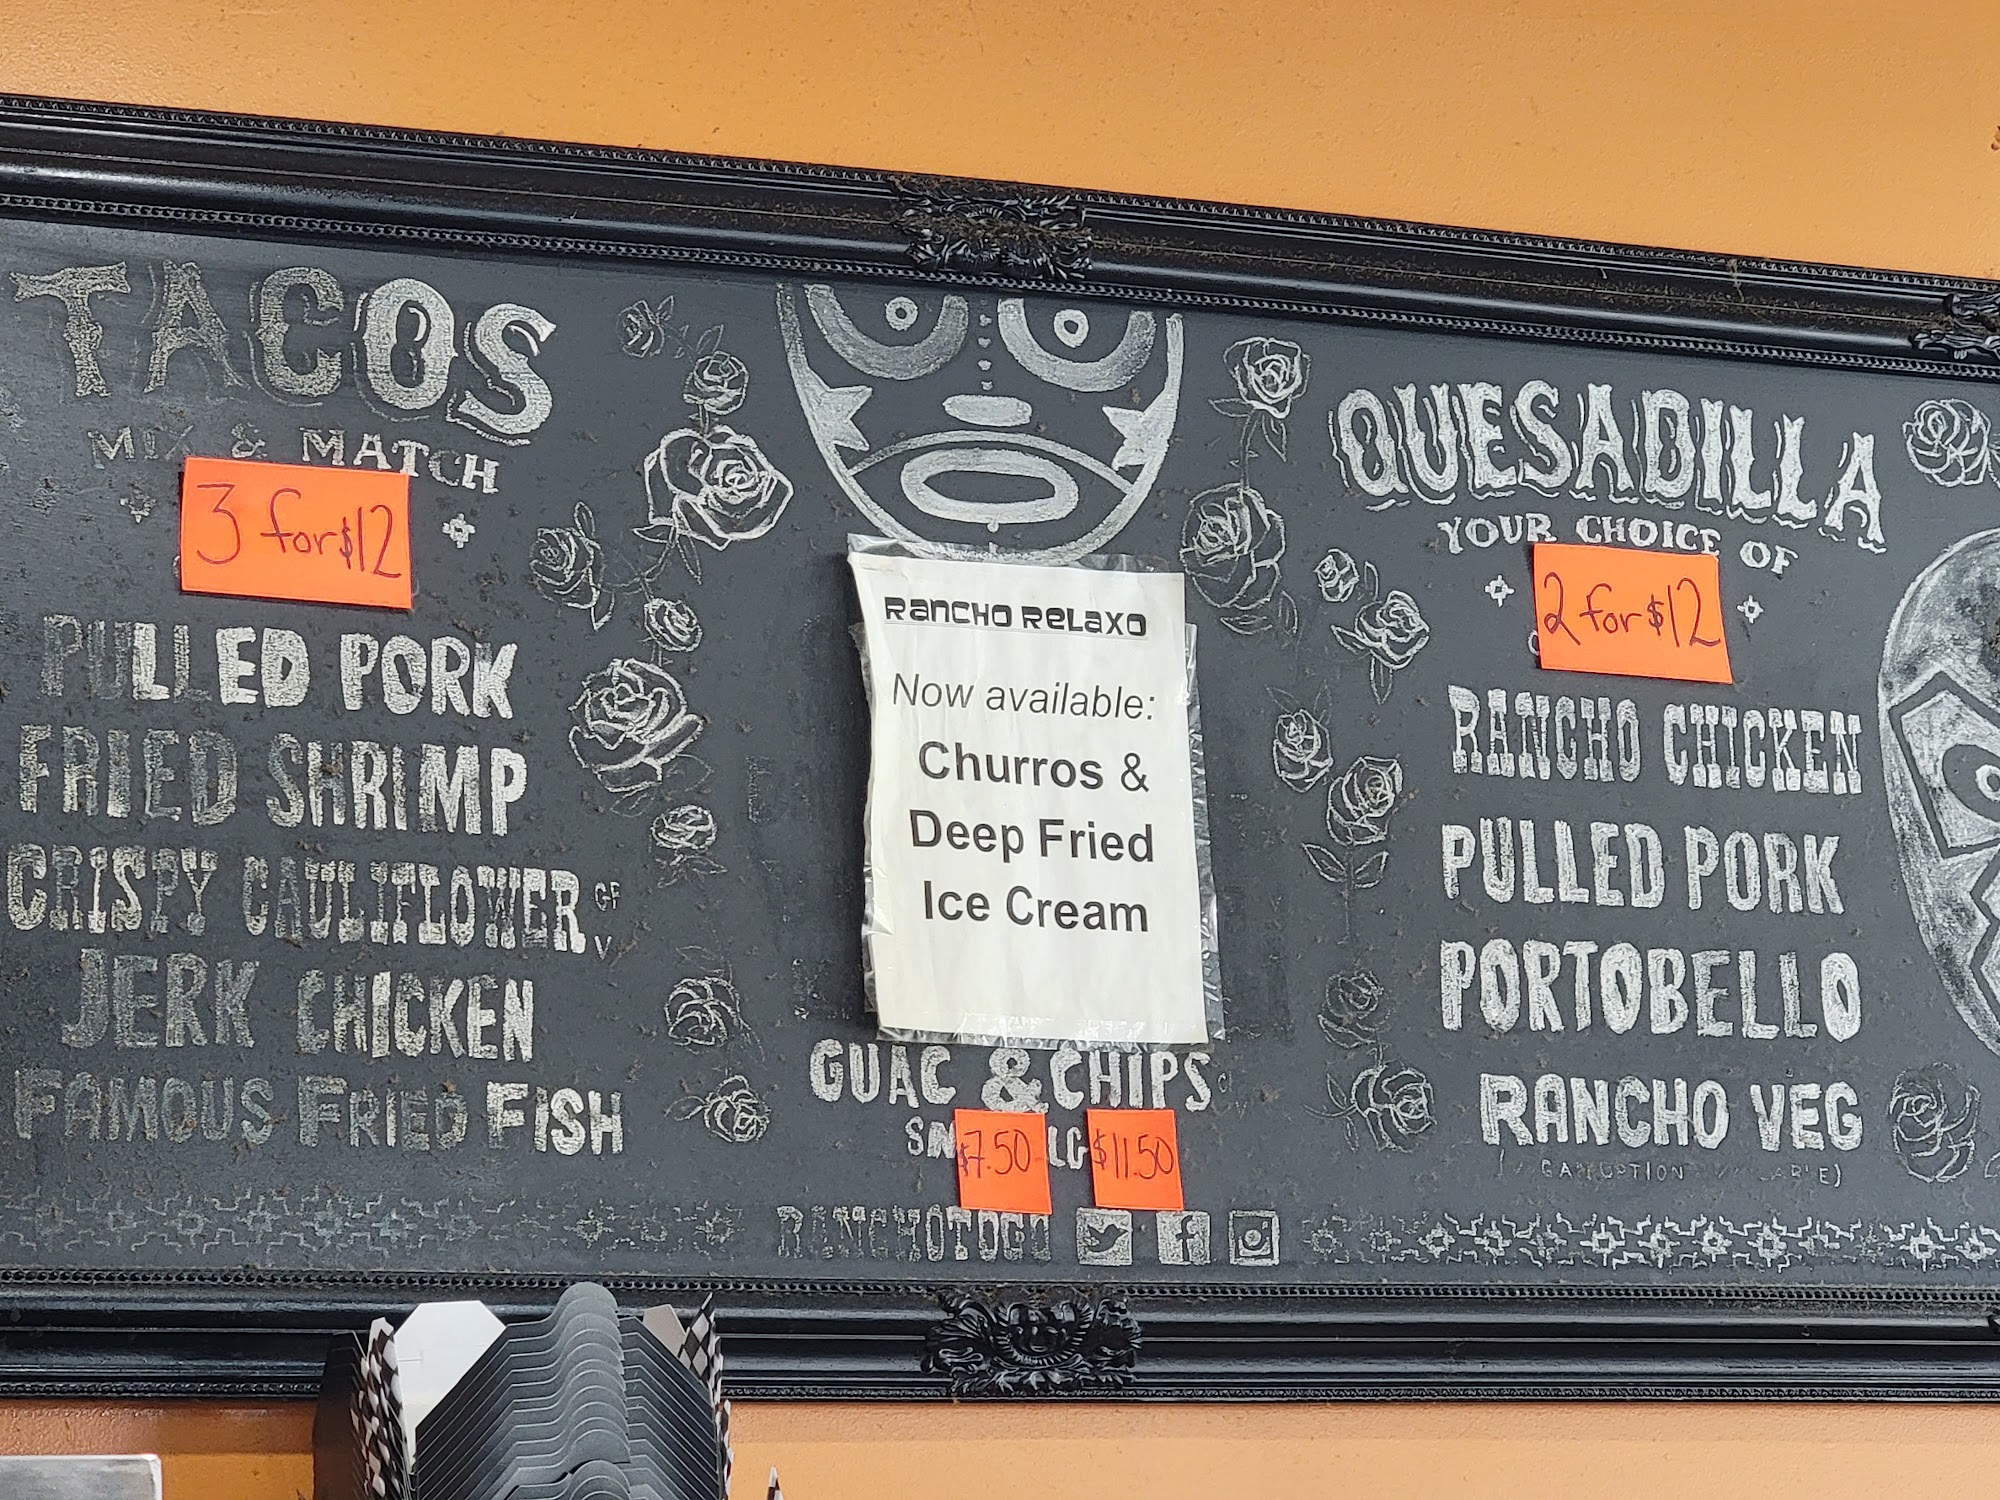 TACOS
MIX & MATCH
3 for $12
PULLED PORK
FRIED SHRIMP
CRISPY CAULIFLOWER GF
V
JERK CHICKEN
FAMOUS FRIED FISH
RANCHO RELAXO
Now available:
Churros &
Deep Fried
Ice Cream
GUAC & CHIPS
$7.50 LG $11.50
RANCHOTOGO
QUESADILLA
YOUR CHOICE OF
2 for $12
RANCHO CHICKEN
PULLED PORK
PORTOBELLO
RANCHO VEG